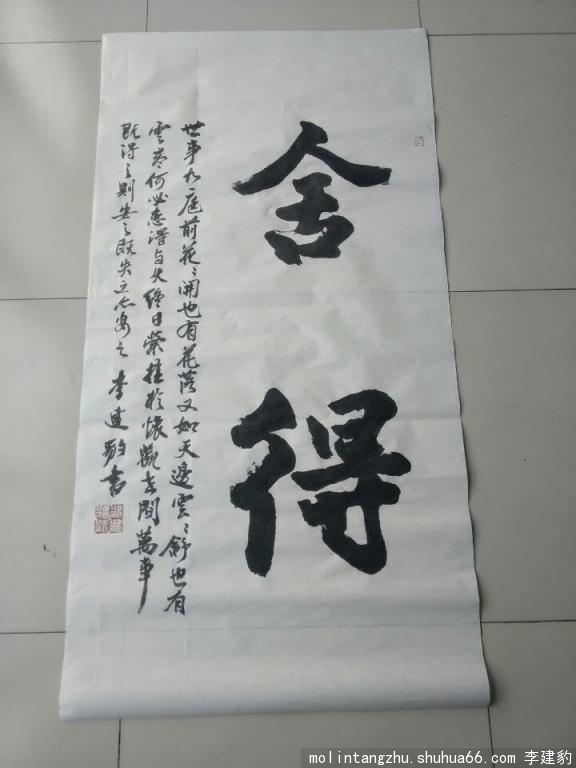 舍得
世事如庭前花々開也有花落又如天邊雲々舒也有
雲卷何必患得与失終日縈挂於懷觀閱萬事
既得之則安之既失之亦安之 李建豹書
molintangzhu.shuhua66.com 李建豹